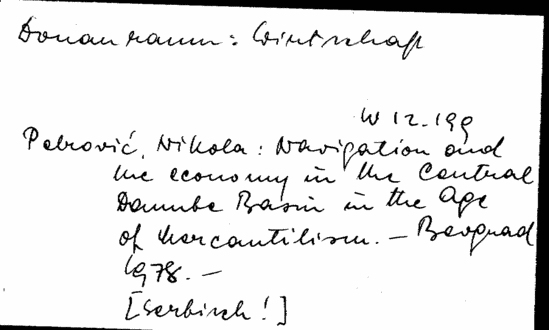 Donauraum: Wirtschaft
W 12.199
Petrović, Nikola: Navigation and
the economy in the Central
Danube Basin in the Age
of Mercantilism. – Beograd
1978. –
[Serbisch!]